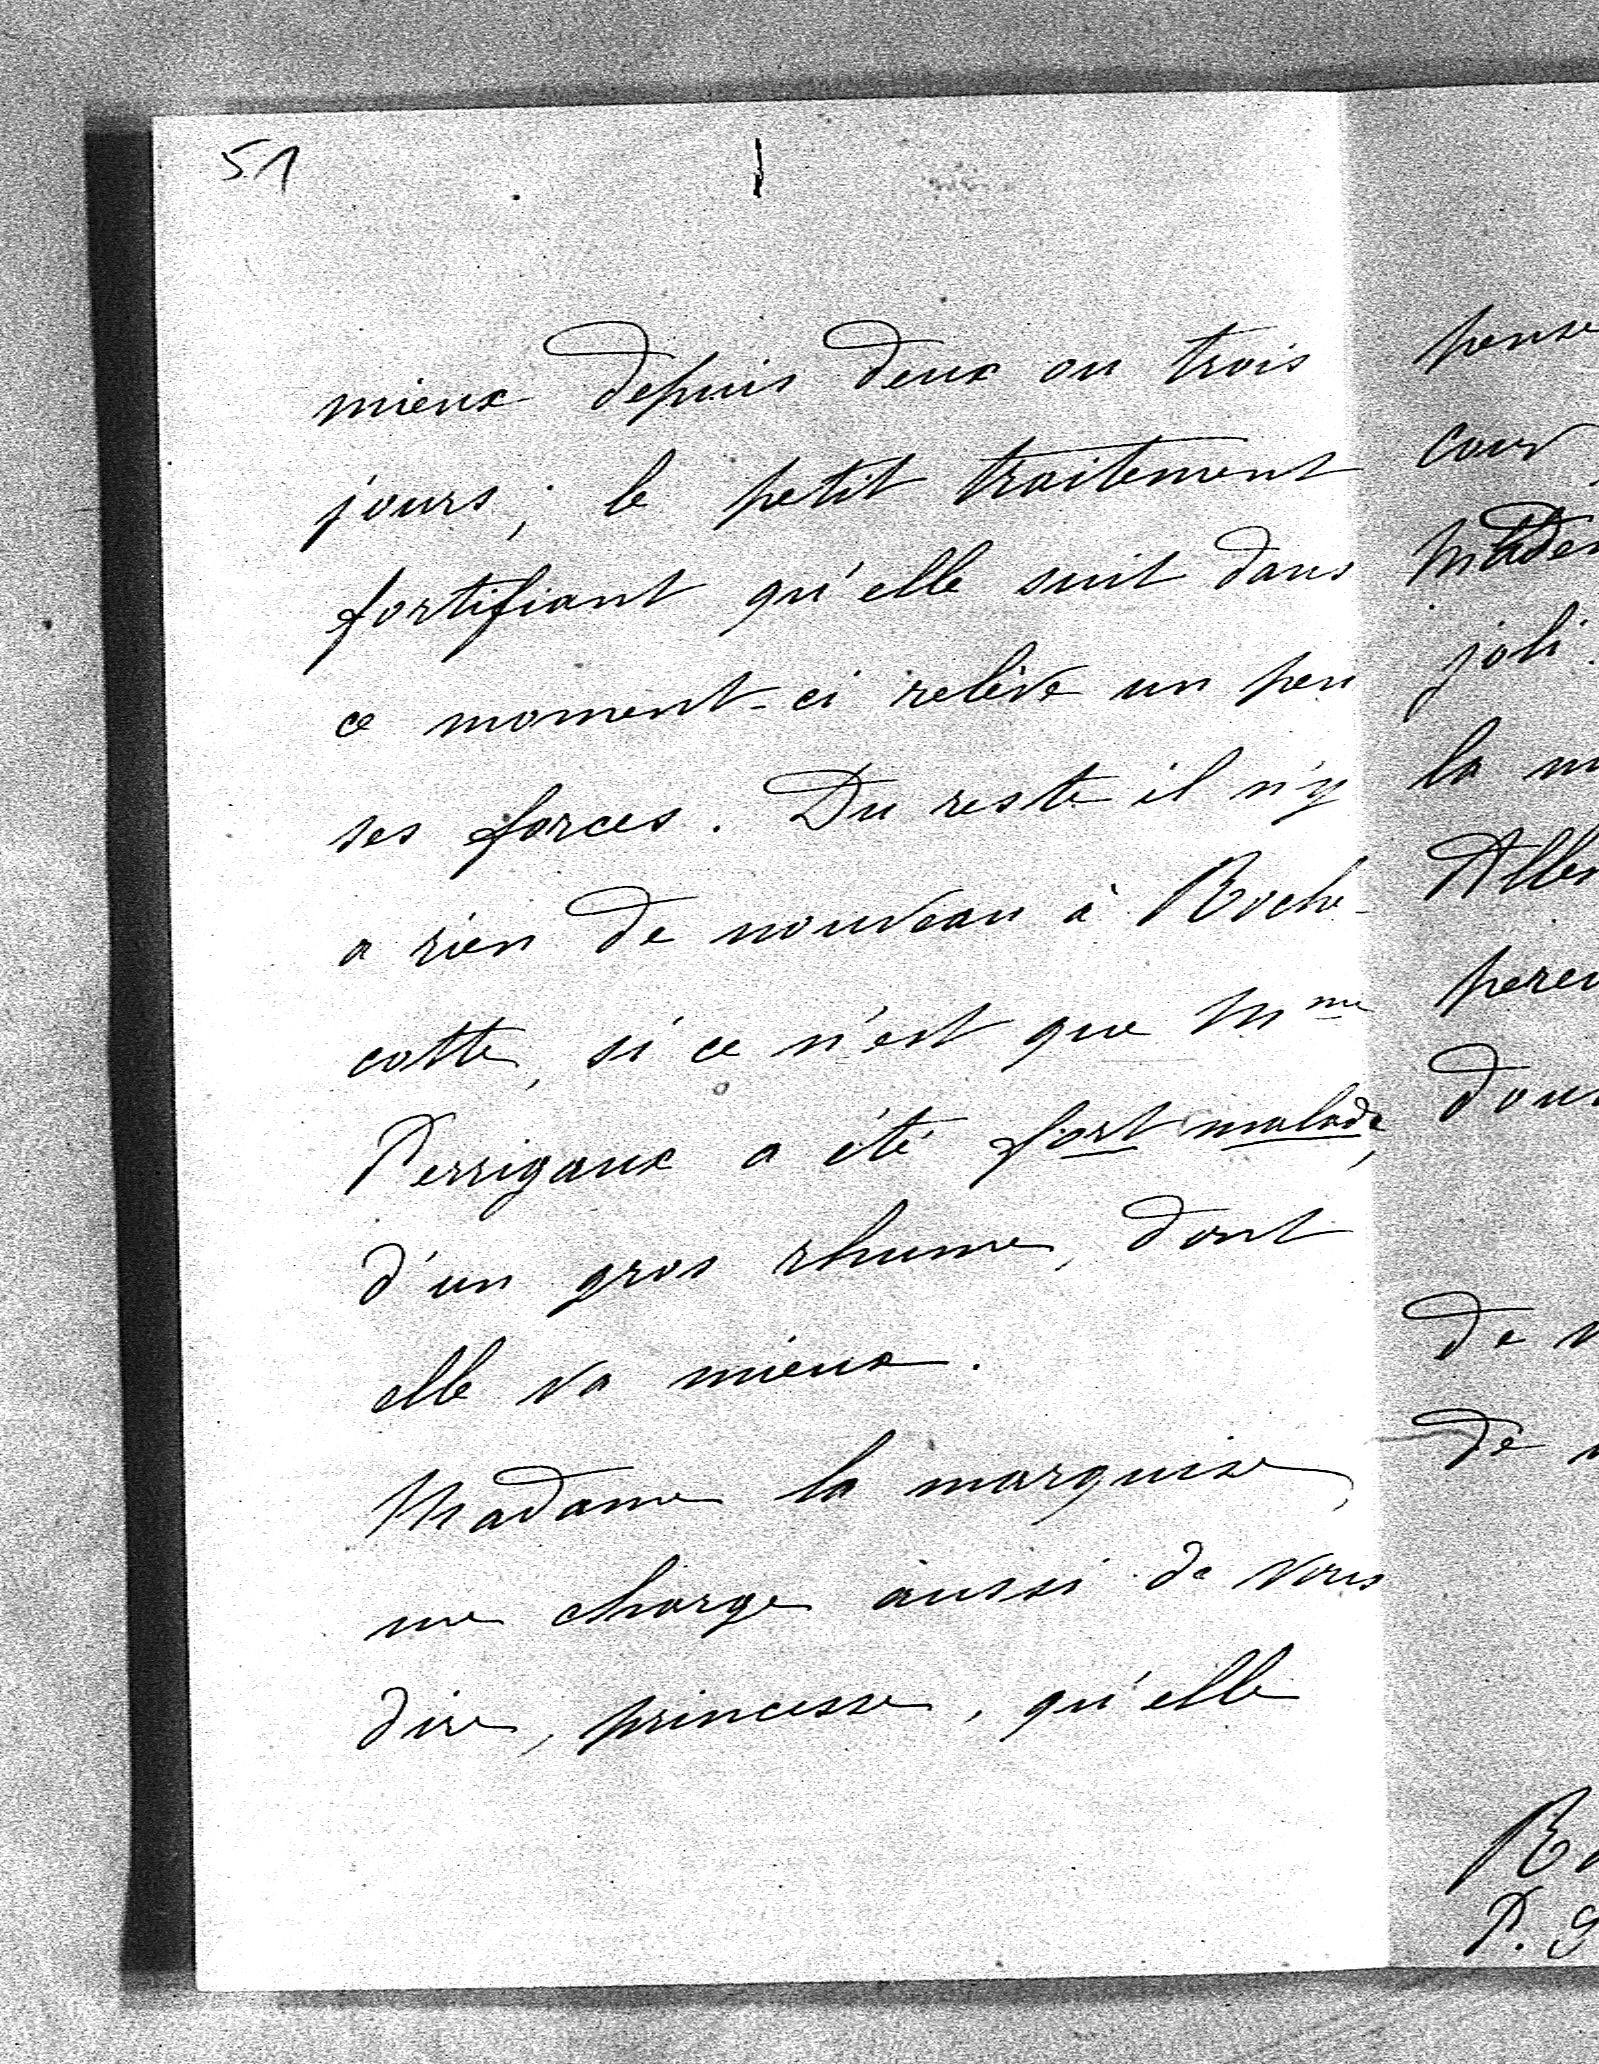 51
mieux depuis deux ou trois
jours ; le petit traitement
fortifiant qu'elle suit dans
ce moment-ci relève un peu
ses forces. Du reste il n'y
a rien de nouveau à Roche-
cotte, si ce n'est que Mme
Perrigaux a été fort malade,
d'un gros rhume, dont
elle va mieux.
Madame la marquise,
me charge aussi de vous
dire, princesse, qu'elle
joli.
la
de
de
P. S